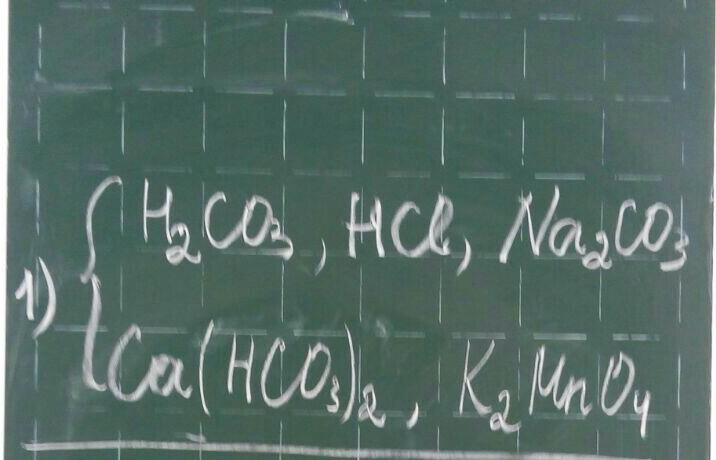 H₂CO₃, HCl, Na₂CO₃
1) { Ca(HCO₃)₂, K₂MnO₄